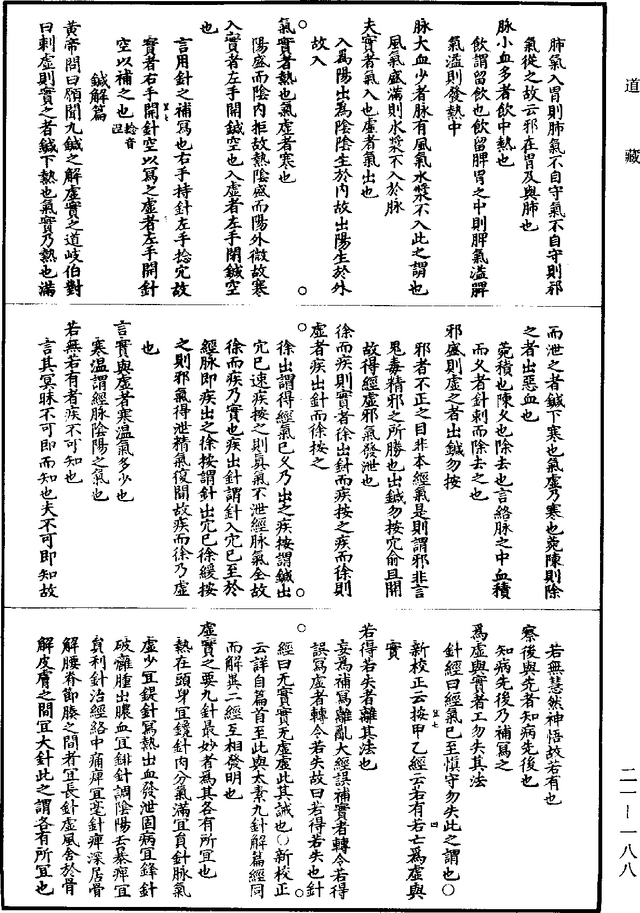 道藏
肺氣入胃則肺氣不自守氣不自守則邪
氣從之故云邪在胃及與肺也
脉小血多者飲中熱也
飲謂留飲也飲留脾胃之中則脾氣溢脾
氣溢則發熱中
脉大血少者脉有風氣水漿不入此之謂也
風氣盛滿則水漿不入於脉
夫實者氣入也虛者氣出也
入為陽出為陰陰生於內故出陽生於外
故入
氣實者熱也氣虛者寒也
陽盛而陰內拒故熱陰盛而陽外微故寒
入實者左手開鍼空也入虛者左手閉鍼空
也
言用針之補寫也右手持針左手捻穴故
實者右手開針空以寫之虛者左手開針
空以補之也捻音涅
鍼解篇
黃帝問曰願聞九鍼之解虛實之道岐伯對
曰刺虛則實之者鍼下熱也氣實乃熱也滿
而泄之者鍼下寒也氣虛乃寒也菀陳則除
之者出惡血也
菀積也陳久也除去也言絡脉之中血積
而久者針刺而除去之也
邪盛則虛之者出鍼勿按
邪者不正之目非本經氣是則謂邪非言
鬼毒精邪之所勝也出鍼勿按穴俞且開
故得經虛邪氣發泄也
徐而疾則實者徐出針而疾按之疾而徐則
虛者疾出針而徐按之
徐出謂得經氣已久乃出之疾按謂鍼出
穴已速疾按之則真氣不泄經脉氣全故
徐而疾乃實也疾出針謂針入穴已至於
經脉即疾出之徐按謂針出穴已徐緩按
之則邪氣得泄精氣復固故疾而徐乃虛
也
言實與虛者寒溫氣多少也
寒溫謂經脉陰陽之氣也
若無若有者疾不可知也
言其冥昧不可即而知也夫不可即知故
若無慧然神悟故若有也
察後與先者知病先後也
知病先後乃補寫之
為虛與實者工勿失其法
針經曰經氣已至慎守勿失此之謂也○
新校正云按甲乙經云若有若亡為虛與
實
若得若失者離其法也
妄為補寫離亂大經誤補實者轉令若得
誤寫虛者轉令若失故曰若得若失也針
經曰无實實无虛虛此其誡也○新校正
云詳自篇首至此與太素九針解篇經同
而解異二經互相發明也
虛實之要九針最妙者為其各有所宜也
熱在頭身宜鑱針肉分氣滿宜員針脉氣
虛少宜鍉針寫熱出血發泄固病宜鋒針
破癰腫出膿血宜鈹針調陰陽去暴痺宜
員利針治經絡中痛痺宜毫針痺深居骨
解腰脊節腠之間者宜長針虛風舍於骨
解皮膚之間宜大針此之謂各有所宜也
二一—一八八